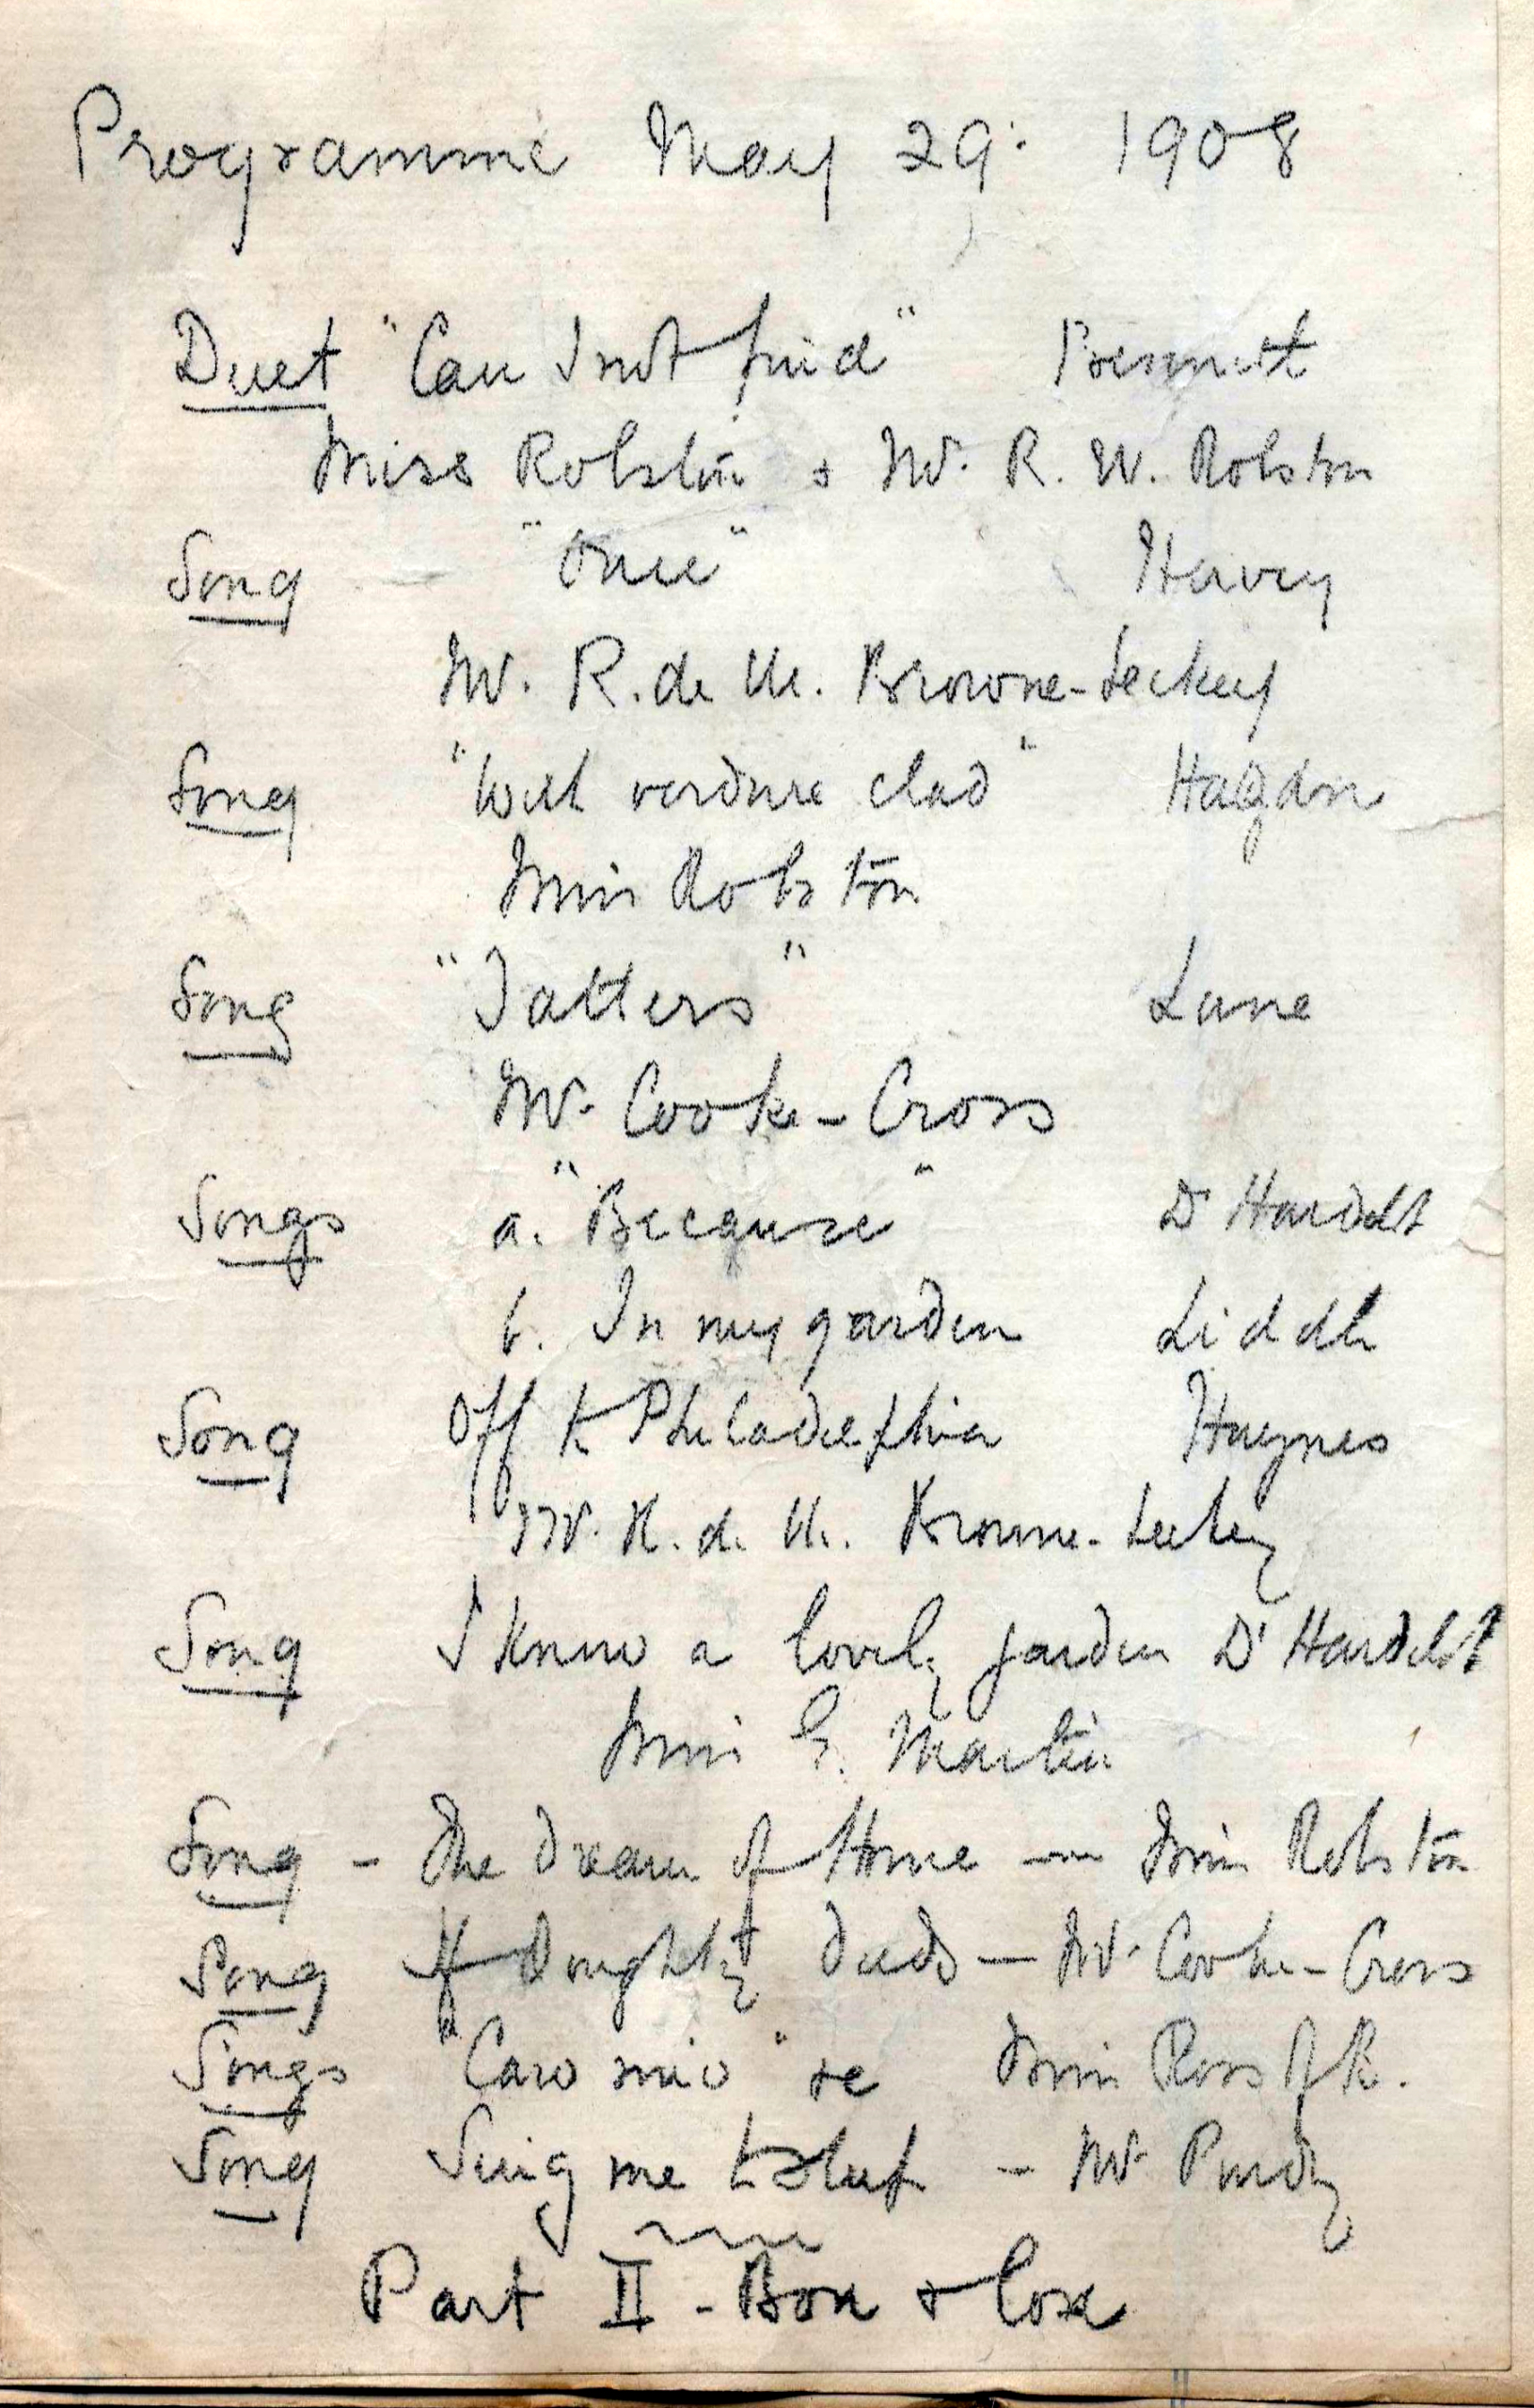 Programme May 29. 1908
Duet "Can I not find" Bennett
Miss Rolston & Mr. R. W. Rolston
Song "Once" Hervey
Mr. R. de M. Browne-Leckey
Song "With verdure clad" Haydn
Miss Rolston
Song "Tatters" Lane
Mr. Cooke-Cross
Songs a. "Because" D'Hardelot
b. In my garden Liddle
Song Off to Philadelphia Haynes
Mr. R. de M. Browne-Leckey
Song I know a lovely garden D'Hardelot
Miss G. Martin
Song - The Dream of Home — Miss Rolston
Song If Doughty Deeds — Mr. Cooke-Cross
Songs "Caro mio" &c Miss Ross of B.
Song Sing me to sleep - Mr Purdy
Part II - Box & Cox